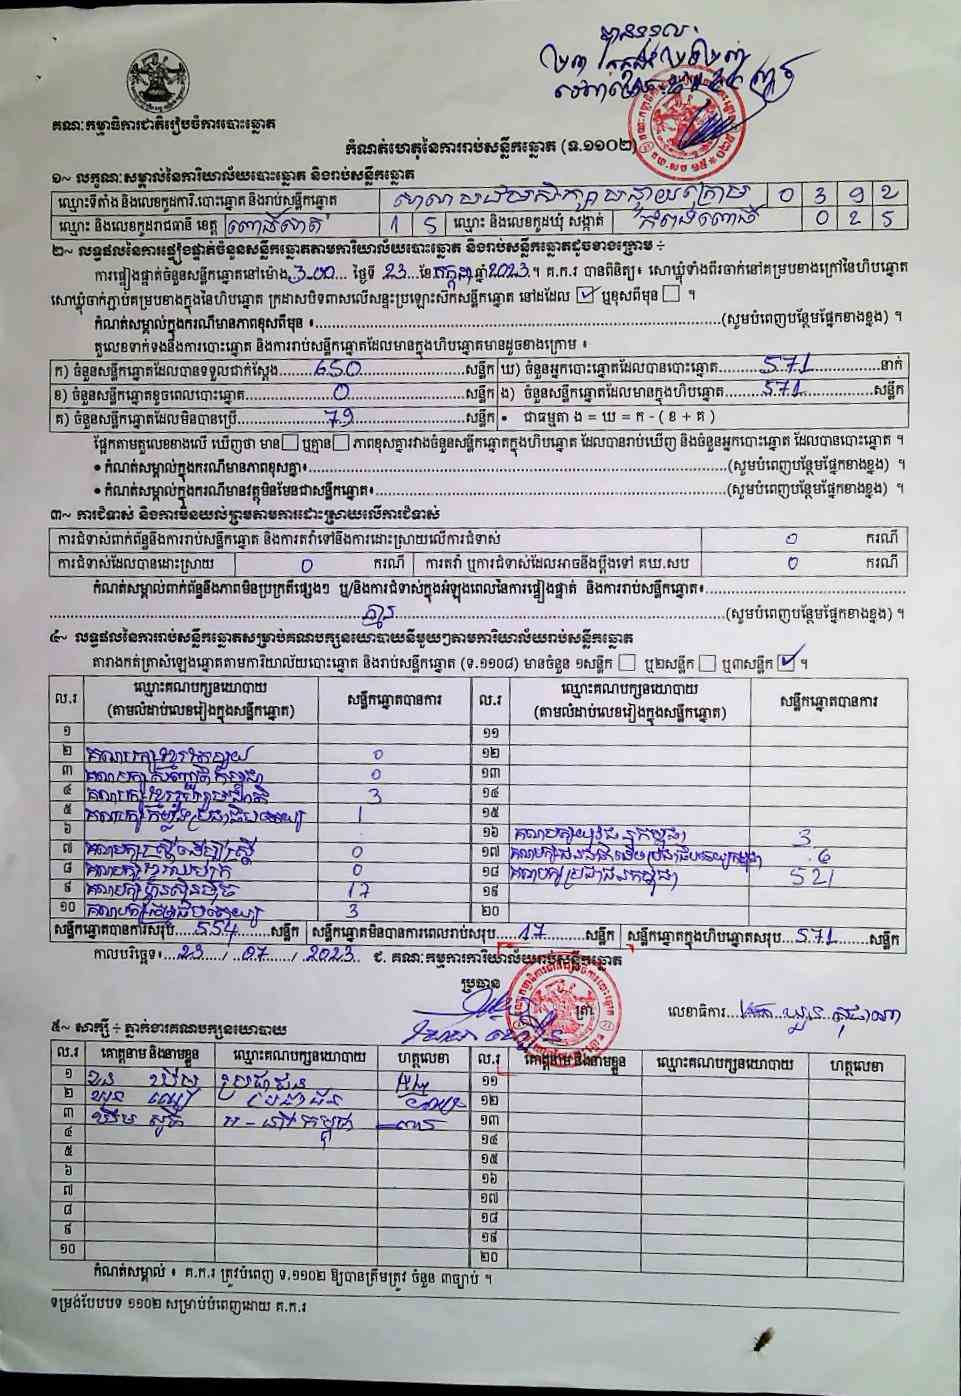 បានទទួល
គណៈកម្មាធិការជាតិរៀបចំការបោះឆ្នោត
កំណត់ហេតុនៃការរាប់សន្លឹកឆ្នោត (ទ.១១០២)
១~ លក្ខណៈសម្គាល់នៃការិយាល័យបោះឆ្នោត និងរាប់សន្លឹកឆ្នោត
ឈ្មោះទីតាំង និងលេខកូដការិ.បោះឆ្នោត និងរាប់សន្លឹកឆ្នោត 0 3 9 2
ឈ្មោះ និងលេខកូដរាជធានី ខេត្ត ពោធិ៍សាត់ 1 5 ឈ្មោះ និងលេខកូដឃុំ សង្កាត់ កំពង់ពោធិ៍ 0 2 5
២~ លទ្ធផលនៃការផ្ទៀងផ្ទាត់ចំនួនសន្លឹកឆ្នោតតាមការិយាល័យបោះឆ្នោត និងរាប់សន្លឹកឆ្នោតដូចខាងក្រោម ÷
ការផ្ទៀងផ្ទាត់ចំនួនសន្លឹកឆ្នោតនៅម៉ោង 3.00 ថ្ងៃទី 23 ខែ កក្កដា ឆ្នាំ 2023 ។ គ.ក.រ បានពិនិត្យ៖ សោឃ្លុំទាំងពីរចាក់នៅគម្របខាងក្រៅនៃហិបឆ្នោត
សោឃ្លុំចាក់ភ្ជាប់គម្របខាងក្នុងនៃហិបឆ្នោត ក្រដាសបិទពាសលើសន្ទះប្រឡោះស៊កសន្លឹកឆ្នោត នៅដដែល ☑ ឬខុសពីមុន ☐ ។
កំណត់សម្គាល់ក្នុងករណីមានភាពខុសពីមុន ៖ (សូមបំពេញបន្ថែមផ្នែកខាងខ្នង) ។
តួលេខទាក់ទងនឹងការបោះឆ្នោត និងការរាប់សន្លឹកឆ្នោតដែលមានក្នុងហិបឆ្នោតមានដូចខាងក្រោម ៖
ក) ចំនួនសន្លឹកឆ្នោតដែលបានទទួលជាក់ស្តែង 650 សន្លឹក ឃ) ចំនួនអ្នកបោះឆ្នោតដែលបានបោះឆ្នោត 571 នាក់
ខ) ចំនួនសន្លឹកឆ្នោតខូចពេលបោះឆ្នោត 0 សន្លឹក ង) ចំនួនសន្លឹកឆ្នោតដែលមានក្នុងហិបឆ្នោត 571 សន្លឹក
គ) ចំនួនសន្លឹកឆ្នោតដែលមិនបានប្រើ 79 សន្លឹក • ជាធម្មតា ង = ឃ = ក - ( ខ + គ )
ផ្អែកតាមតួលេខខាងលើ ឃើញថា មាន ☐ ឬគ្មាន ☐ ភាពខុសគ្នារវាងចំនួនសន្លឹកឆ្នោតក្នុងហិបឆ្នោត ដែលបានរាប់ឃើញ និងចំនួនអ្នកបោះឆ្នោត ដែលបានបោះឆ្នោត ។
• កំណត់សម្គាល់ក្នុងករណីមានភាពខុសគ្នា៖ (សូមបំពេញបន្ថែមផ្នែកខាងខ្នង) ។
• កំណត់សម្គាល់ក្នុងករណីមានវត្ថុមិនមែនជាសន្លឹកឆ្នោត៖ (សូមបំពេញបន្ថែមផ្នែកខាងខ្នង) ។
៣~ ការជំទាស់ និងការមិនយល់ព្រមតាមការដោះស្រាយលើការជំទាស់
ការជំទាស់ពាក់ព័ន្ធនឹងការរាប់សន្លឹកឆ្នោត និងការតវ៉ាទៅនឹងការដោះស្រាយលើការជំទាស់ 0 ករណី
ការជំទាស់ដែលបានដោះស្រាយ 0 ករណី ការតវ៉ា ឬការជំទាស់ដែលអាចនឹងប្តឹងទៅ គឃ.សប 0 ករណី
កំណត់សម្គាល់ពាក់ព័ន្ធនឹងភាពមិនប្រក្រតីផ្សេងៗ ឬ/និងការជំទាស់ក្នុងអំឡុងពេលនៃការផ្ទៀងផ្ទាត់ និងការរាប់សន្លឹកឆ្នោត៖
គ្មាន (សូមបំពេញបន្ថែមផ្នែកខាងខ្នង) ។
៤~ លទ្ធផលនៃការរាប់សន្លឹកឆ្នោតសម្រាប់គណបក្សនយោបាយនីមួយៗតាមការិយាល័យរាប់សន្លឹកឆ្នោត
តារាងកត់ត្រាសំឡេងឆ្នោតតាមការិយាល័យបោះឆ្នោត និងរាប់សន្លឹកឆ្នោត (ទ.១១០៨) មានចំនួន ១សន្លឹក ☐ ឬ២សន្លឹក ☐ ឬ៣សន្លឹក ☑ ។
ល.រ ឈ្មោះគណបក្សនយោបាយ (តាមលំដាប់លេខរៀងក្នុងសន្លឹកឆ្នោត) សន្លឹកឆ្នោតបានការ ល.រ ឈ្មោះគណបក្សនយោបាយ (តាមលំដាប់លេខរៀងក្នុងសន្លឹកឆ្នោត) សន្លឹកឆ្នោតបានការ
១ ១១
២ 0 ១២
៣ 0 ១៣
៤ គណបក្សខ្មែររួបរួមជាតិ 3 ១៤
៥ គណបក្សកម្លាំងប្រជាធិបតេយ្យ 1 ១៥
៦ ១៦ គណបក្សយុវជនកម្ពុជា 3
៧ គណបក្សស្ត្រីដើម្បីស្ត្រី 0 ១៧ 6
៨ 0 ១៨ គណបក្សប្រជាជនកម្ពុជា 521
៩ គណបក្សហ្វ៊ុនស៊ិនប៉ិច 17 ១៩
១០ 3 ២០
សន្លឹកឆ្នោតបានការសរុប 554 សន្លឹក សន្លឹកឆ្នោតមិនបានការពេលរាប់សរុប 17 សន្លឹក សន្លឹកឆ្នោតក្នុងហិបឆ្នោតសរុប 571 សន្លឹក
កាលបរិច្ឆេទ៖ 23 / 07 / 2023 ជ. គណៈកម្មការការិយាល័យរាប់សន្លឹកឆ្នោត
ប្រធាន
ត្រា លេខាធិការ
៥~ សាក្សី ÷ ភ្នាក់ងារគណបក្សនយោបាយ
ល.រ គោត្តនាម និងនាមខ្លួន ឈ្មោះគណបក្សនយោបាយ ហត្ថលេខា ល.រ គោត្តនាម និងនាមខ្លួន ឈ្មោះគណបក្សនយោបាយ ហត្ថលេខា
១ ប្រជាជន ១១
២ ប្រជាជន ១២
៣ ១៣
៤ ១៤
៥ ១៥
៦ ១៦
៧ ១៧
៨ ១៨
៩ ១៩
១០ ២០
កំណត់សម្គាល់ ៖ គ.ក.រ ត្រូវបំពេញ ទ.១១០២ ឱ្យបានត្រឹមត្រូវ ចំនួន ៣ច្បាប់ ។
ទម្រង់បែបបទ ១១០២ សម្រាប់បំពេញដោយ គ.ក.រ